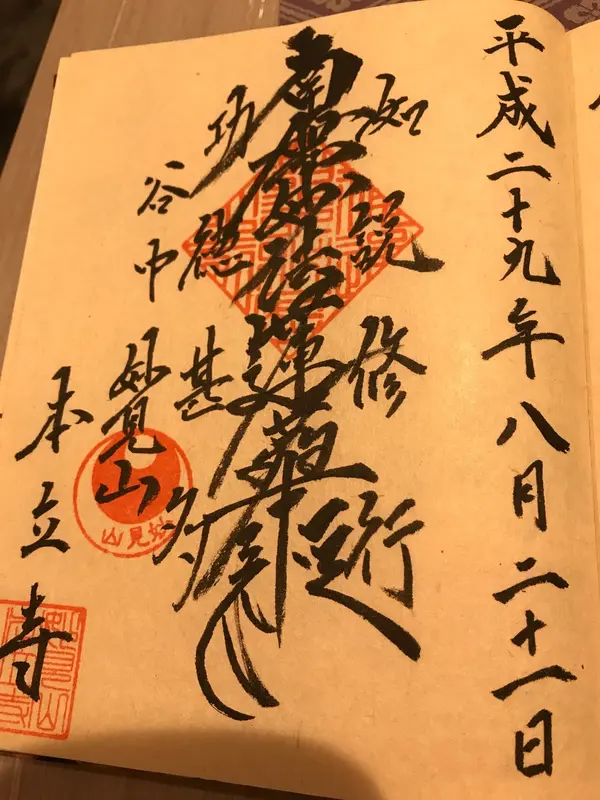 平成二十九年八月二十一日
如説修行
南無妙法蓮華経
功徳甚多
谷中
妙覚山
本立寺
山見妙